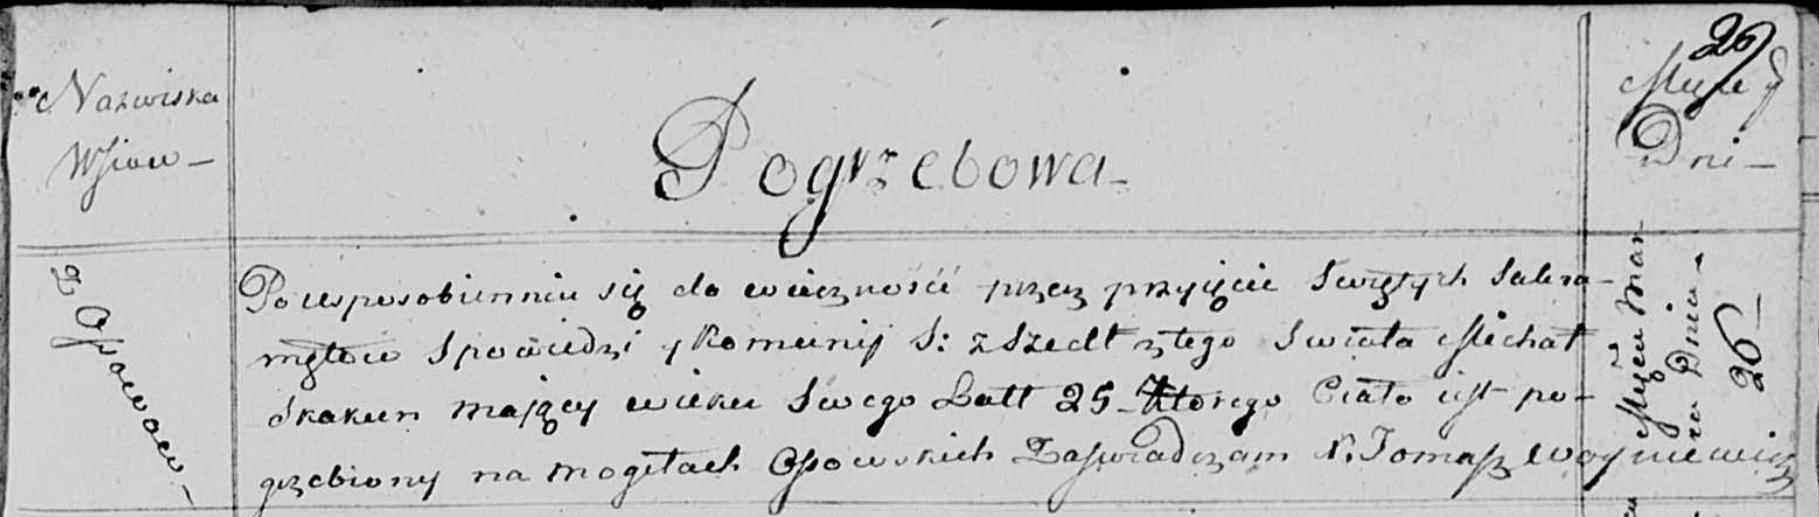 Nazwiska
Wsiow –
Pogrzebowa –
26
Msca y
Dni –
z Osowa –
Po usposobienniu się do wieczność przez przyięcie Swiętych Sakra-
mętow Spowiedzi y Komunij S: zszedł ztego Swiata Michał
Skakun mający wieku Swego Latt 25 – Ktorego Ciało iest po-
grzebiony na mogiłach Osowskich Zaswiadczam X. Tomasz Woyniewicz
Msca Mar
ca Dnia –
26 –